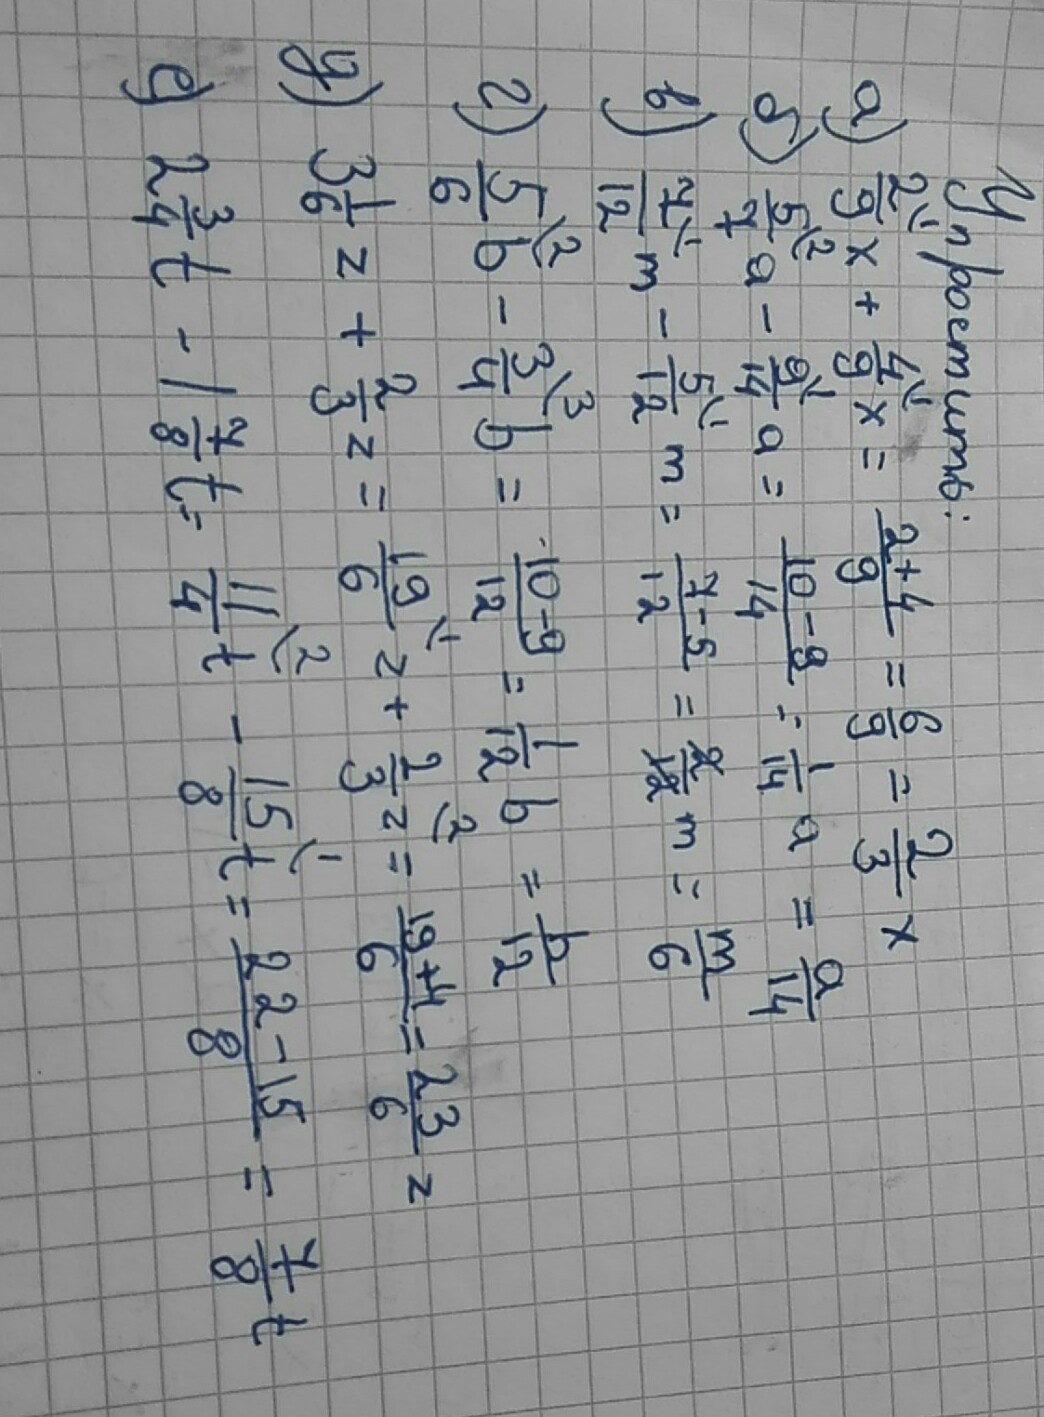 Упростить:
а) 2/9^(1 x + 4/9^(1 x = (2+4)/9 = 6/9 = 2/3 x
б) 5/7^(2 a - 9/14^(1 a = (10-9)/14 = 1/14 a = a/14
в) 7/12^(1 m - 5/12^(1 m = (7-5)/12 = 2/12 m = m/6
г) 5/6^(2 b - 3/4^(3 b = (10-9)/12 = 1/12 b = b/12
д) 3 1/6 z + 2/3 z = 19/6^(1 z + 2/3^(2 z = (19+4)/6 = 23/6 z
е) 2 3/4 t - 1 7/8 t = 11/4^(2 t - 15/8^(1 t = (22-15)/8 = 7/8 t